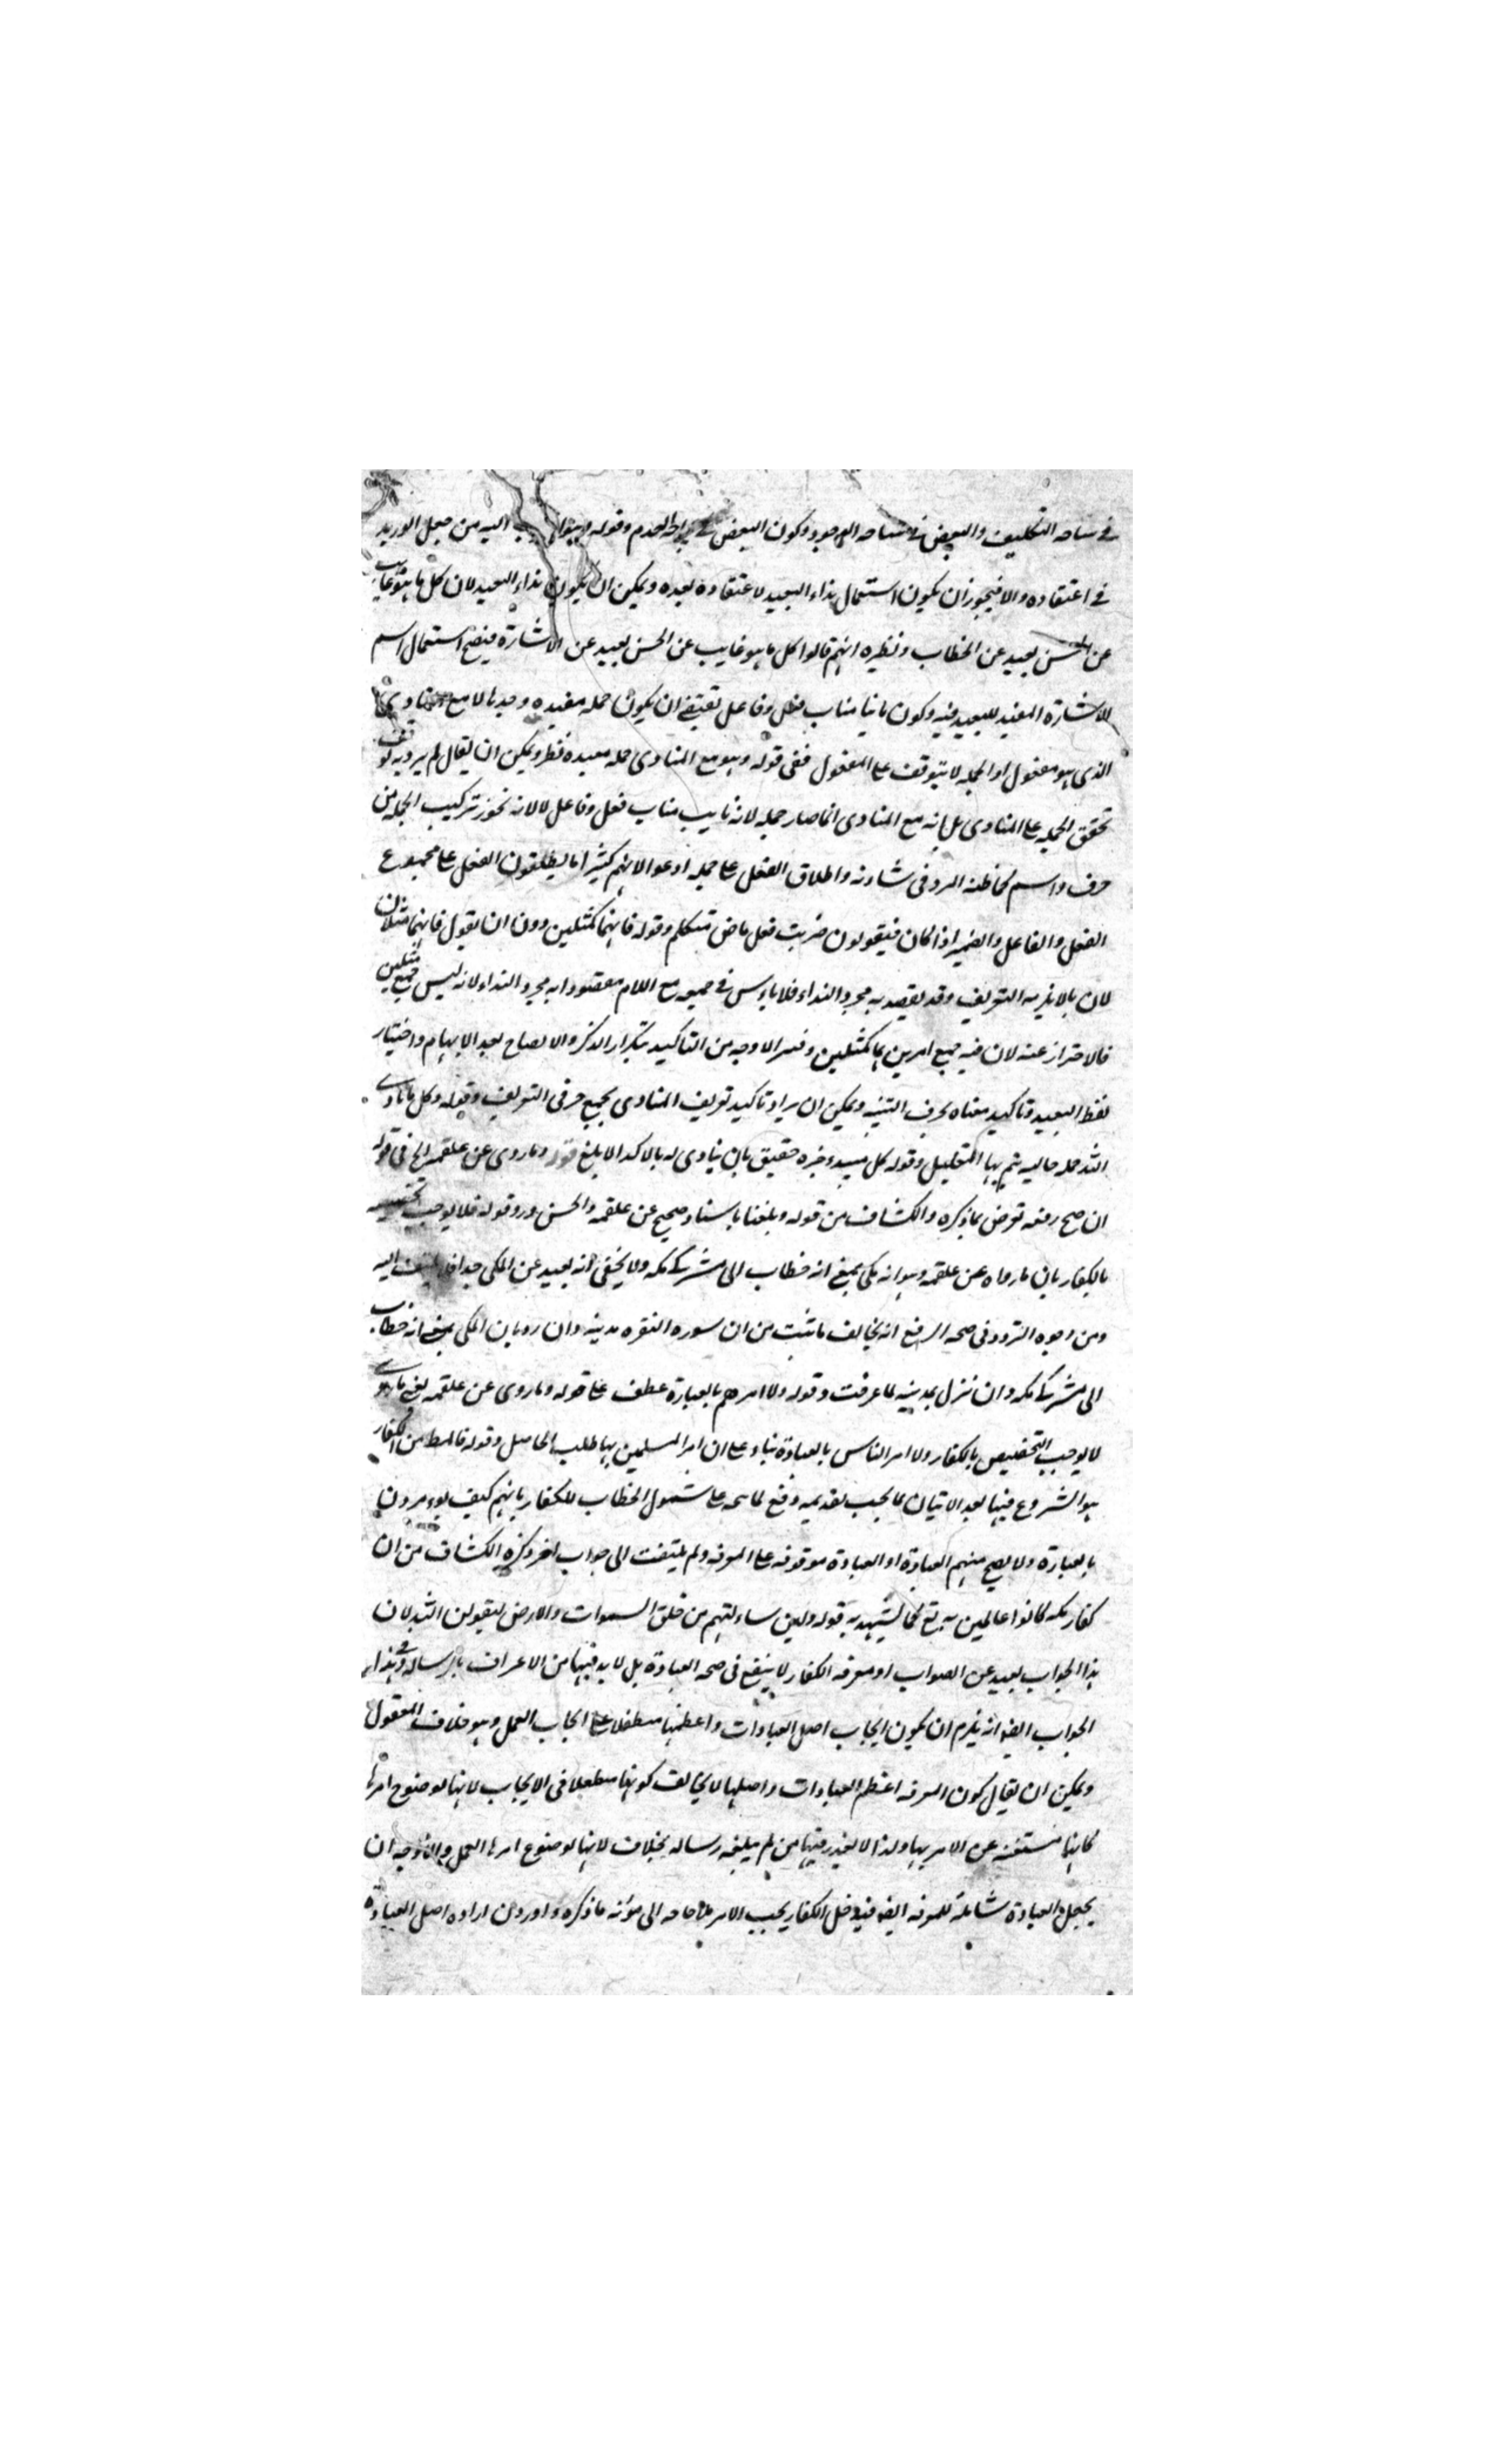 في ساحه التكليف والبعض في ساحه الوجود وكون البعض في العدم وقوله وهو اليه من حبل الوريد
في اعتقاده والا فيجوز ان يكون استعمال نداء البعيد لاعتقاده بعده ويمكن ان يكون نداء البعيد لان كل ما هو غايب
عن الحس بعيد عن الخطاب ونظيره انهم قالوا كل ما هو غايب عن الحس بعيد عن الاشارة فيصح استعمال اسم
الاشارة المفيد للبعيد فيه وكون يا نايبا مناب فعل وفاعل يقتضي ان يكون جمله مفيده وحدها لا مع المنادى
الذي هو مفعول اذ الجمله لا يتوقف على المفعول ففي قوله وهو مع المنادى جمله مفيده فنظر ويمكن ان يقال لم يرد به توقف
تحقق الجمله على المنادى بل انه مع المنادى انما صار جمله لانه نايب مناب فعل وفاعل لا لانه يجوز تركيب الجمله من
حرف واسم كما ظنه المبرد في شاونه واطلاق الفعل على جمله ادعو الا انهم كثيرا ما يطلقون الفعل على مجموع
الفعل والفاعل والضمير اذا كان فيقولون ضربت فعل ماض متكلم وقوله فانهما كمثلين دون ان يقول فانهما مثلان
لان يا لا يلزمه التعريف وقد يقصد به مجرد النداء فلا باس في جمعه مع اللام مقصودا به مجرد النداء لانه ليس جمع مثلين
فالاحتراز عنه لان فيه جمع امرين هما كمثلين وفسر الاوجه من التاكيد بتكرار الذكر والايضاح بعد الابهام واختيار
لفظ البعيد وتاكيد معناه بحرف التنبيه ويمكن ان يراد تاكيد تعريف المنادى بجمع حرفي التعريف وقوله وكل ما نادى
الله جمله حاليه يتم بها التعليل وقوله كل مبتدء خبره حقيق بان ينادى له بالاكد الابلغ قوله وما روى عن علقمه الخ في قوله
ان صح رفعه تعرض بما ذكره والكشاف من قوله وبلغنا باسناد صحيح عن علقمه والحسن ورد قوله فلا يوجب تخصيصه
بالكفار بان ما رواه عن علقمه وهو انه مكي بمعنى انه خطاب الى مشركي مكه ولا يخفى انه بعيد عن المكي جدا فلا يلتفت اليه
ومن اجوه التردد في صحه الرفع انه يخالف ما ثبت من ان سوره البقره مدينه وان رد بان المكي بمعنى انه خطاب
الى مشركي مكه وان نزل بمدينه لما عرفت وقوله ولا امرهم بالعبادة عطف على قوله وما روى عن علقمه يعني ما روى
لا يوجب التخصيص بالكفار ولا امر الناس بالعبادة بناء على ان امر المسلمين بها طلب الحاصل وقوله فالمط من الكفار
هو الشروع فيها بعد الاتيان بما يجب تقديمه دفع لما يتجه على شمول الخطاب للكفار بانهم كيف يؤمرون
بالعبادة ولا يصح منهم العبادة اذ العبادة موقوفه على المعرفه ولم يلتفت الى جواب اخر ذكره الكشاف من ان
كفار مكه كانوا عالمين به تع كما يشهد به قوله ولئن سالتهم من خلق السموات والارض ليقولن الله لان
هذا الجواب بعيد عن الصواب اذ معرفه الكفار لا ينفع في صحه العبادة بل لا بد فيها من الاعتراف بالرساله وفي هذا
الجواب ايضا انه يلزم ان يكون ايجاب اصل العبادات واعظمها متطفلا على ايجاب العمل وهو خلاف المعقول
ويمكن ان يقال كون المعرفه اعظم العبادات واصلها لا يخالف كونها متطفلا في الايجاب لانها لوضوح امرها
كانها مستغنه عن الامر بها ولذا لا يعذر فيها من لم يبلغه رساله بخلاف لانها لوضوح امرها العمل والاوجه ان
يجعل العبادة شاملة للمعرفه ايضا فيدخل الكفار بحسب الامر فلا حاجه الى مؤنه ما ذكره واورد ان اراده اصل العبادة